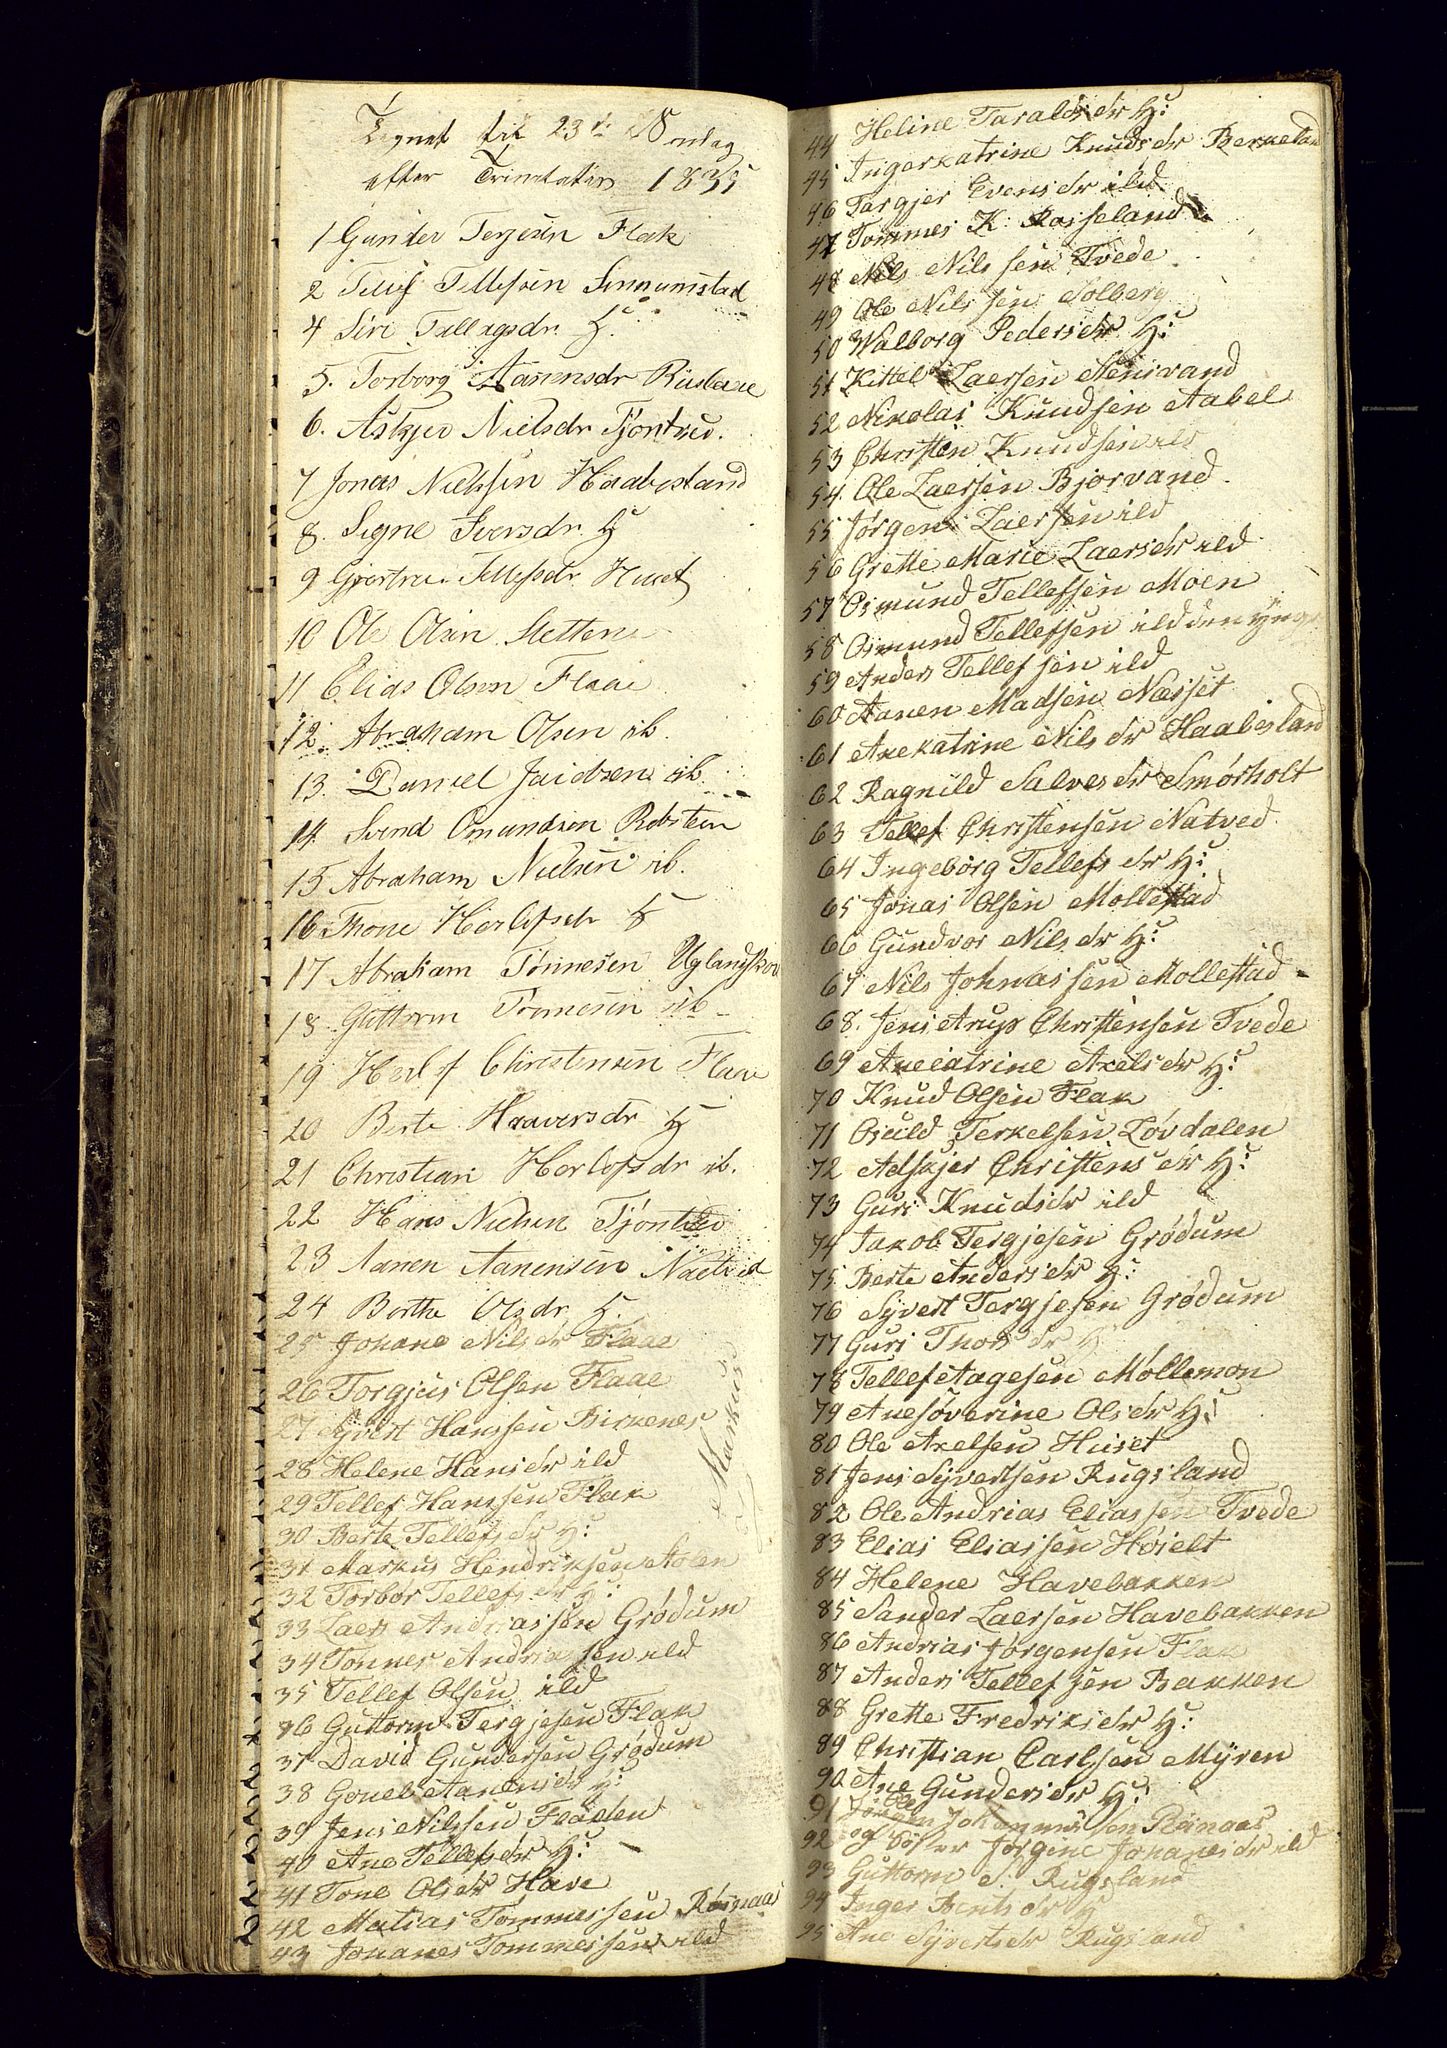 Tegnet til 23de Søndag
efter Trinitatis 1835
1 Gunder Terjesen Flak
2 Tellef Tellefsen Senumstad
4 Siri Tallagsdr H:
5. Torborg Aanensdr
6. Askjer Nielsdr Tjontved.
7 Jonas Nielsen Haabesland
8. Signe Iversdr. H:
9 Gjertru Tellefsdr. Huset
10 Ole Olsen Sletten
11 Elias Olsen Flaae
12. Abraham Olsen ib.
13. Daniel ib.
14. Svend Omundsen Robsteen
15 Abraham Nielsen ib.
16. Thone Herlofsdr H
17 Abraham Tönnesen Uglandskov
18 Guttorm Tönnesen ib
19 Herlof Christensen Flaae
20 Berte Haaversdr H
21 Christian Herlofsdr ib.
22 Hans Nielsen Tjontved
23 Aanen Aanensen Natved
24 Berthe Olsdr. H.
25 Johane Nilsdr Flaae
26 Torgjus Olsen Flaae
27 Syvert Hanssen Birkenes
28 Helene Hansdr ild
29 Tellef Hanssen Flak
30 Berte Tellefsdr H:
31 Markus Hendriksen Stolen
32 Torbor Tellefsdr H:
33 Laers Andriassen Grødum
34 Tonnes Andriassen ild
35 Tellef Olsen ild
36 Guttorm Tergjesen Flak
37 David Gundersen Grødum
38 Gouel Aanensdr H:
39 Jens Nilssen Flåden
40 Ane Tellefsdr H:
41 Tone Olsdr Have
42 Matias Tommessen Røisnaas
43 Johanes Tommessen ild
Markus
44 Heline Taraldsdr H:
45 Ingerkatrine Knudsdr Berkeland
46 Targjer Evensdr ild
47 Tommes K. Rosseland
48 Nils Nilssen Tvede
49 Ole Nilssen Solberg
50 Walborg Pedersdr H:
51 Kittel Laersen Stensvand
52 Nikolai Knudsen Aabel
53 Christen Knudsen ild
54. Ole Laersen Bjorvand.
55 Jørgen Laersen ild
56 Grette Marie Laersdr ild
57 Osmund Tellefsen Moen
58 Osmund Tellefsen ild den yngre
59 Anders Tellefsen ild
60 Aanen Madsen Næsset
61 Anekatrine Nilsdr Haabesland
62 Ragnild Salvesdr Smørholt
63 Tellef Christensen Natved
64 Ingeborg Tellefsdr H:
65 Jonas Olsen Mollestad
66 Gundvor Nilsdr H:
67 Nils Johnassen Mollestad
68. Jens Arup Christensen Tvede
69 Anecatrine Axelsdr H:
70 Knud Olsen Flak
71 Osuld Terkelsen Løvdalen
72 Adskjer Christensdr H:
73 Guri Knudsdr ild
74 Jakob Tergjesen Grødum
75 Berte Andersdr H:
76 Syvert Tergjesen Grødum
77 Guri Thorsdr H
78 Tellef Aagesen Møllemon
79 Anesøverine Olsdr H:
80 Ole Axelsen Huset
81 Jens Syvertsen Rugsland
82 Ole Andrias Eliassen Tvede
83 Elias Eliassen Høielt
84 Helene Havebakken
85 Sander Laersen Havebakken
86 Andrias Jørgensen Flak
87 Anders Tellefsen Bakken
88 Grette Fredriksdr H:
89 Christian Carlsen Myren
90 Ane Gundersdr H:
91 Johannessen Rånaas
92 og Jørgine Johanesdr ild
93 Guttorm S. Rugsland
94 Inger Bentsdr H
95 Ane Syvertsdr Rugsland